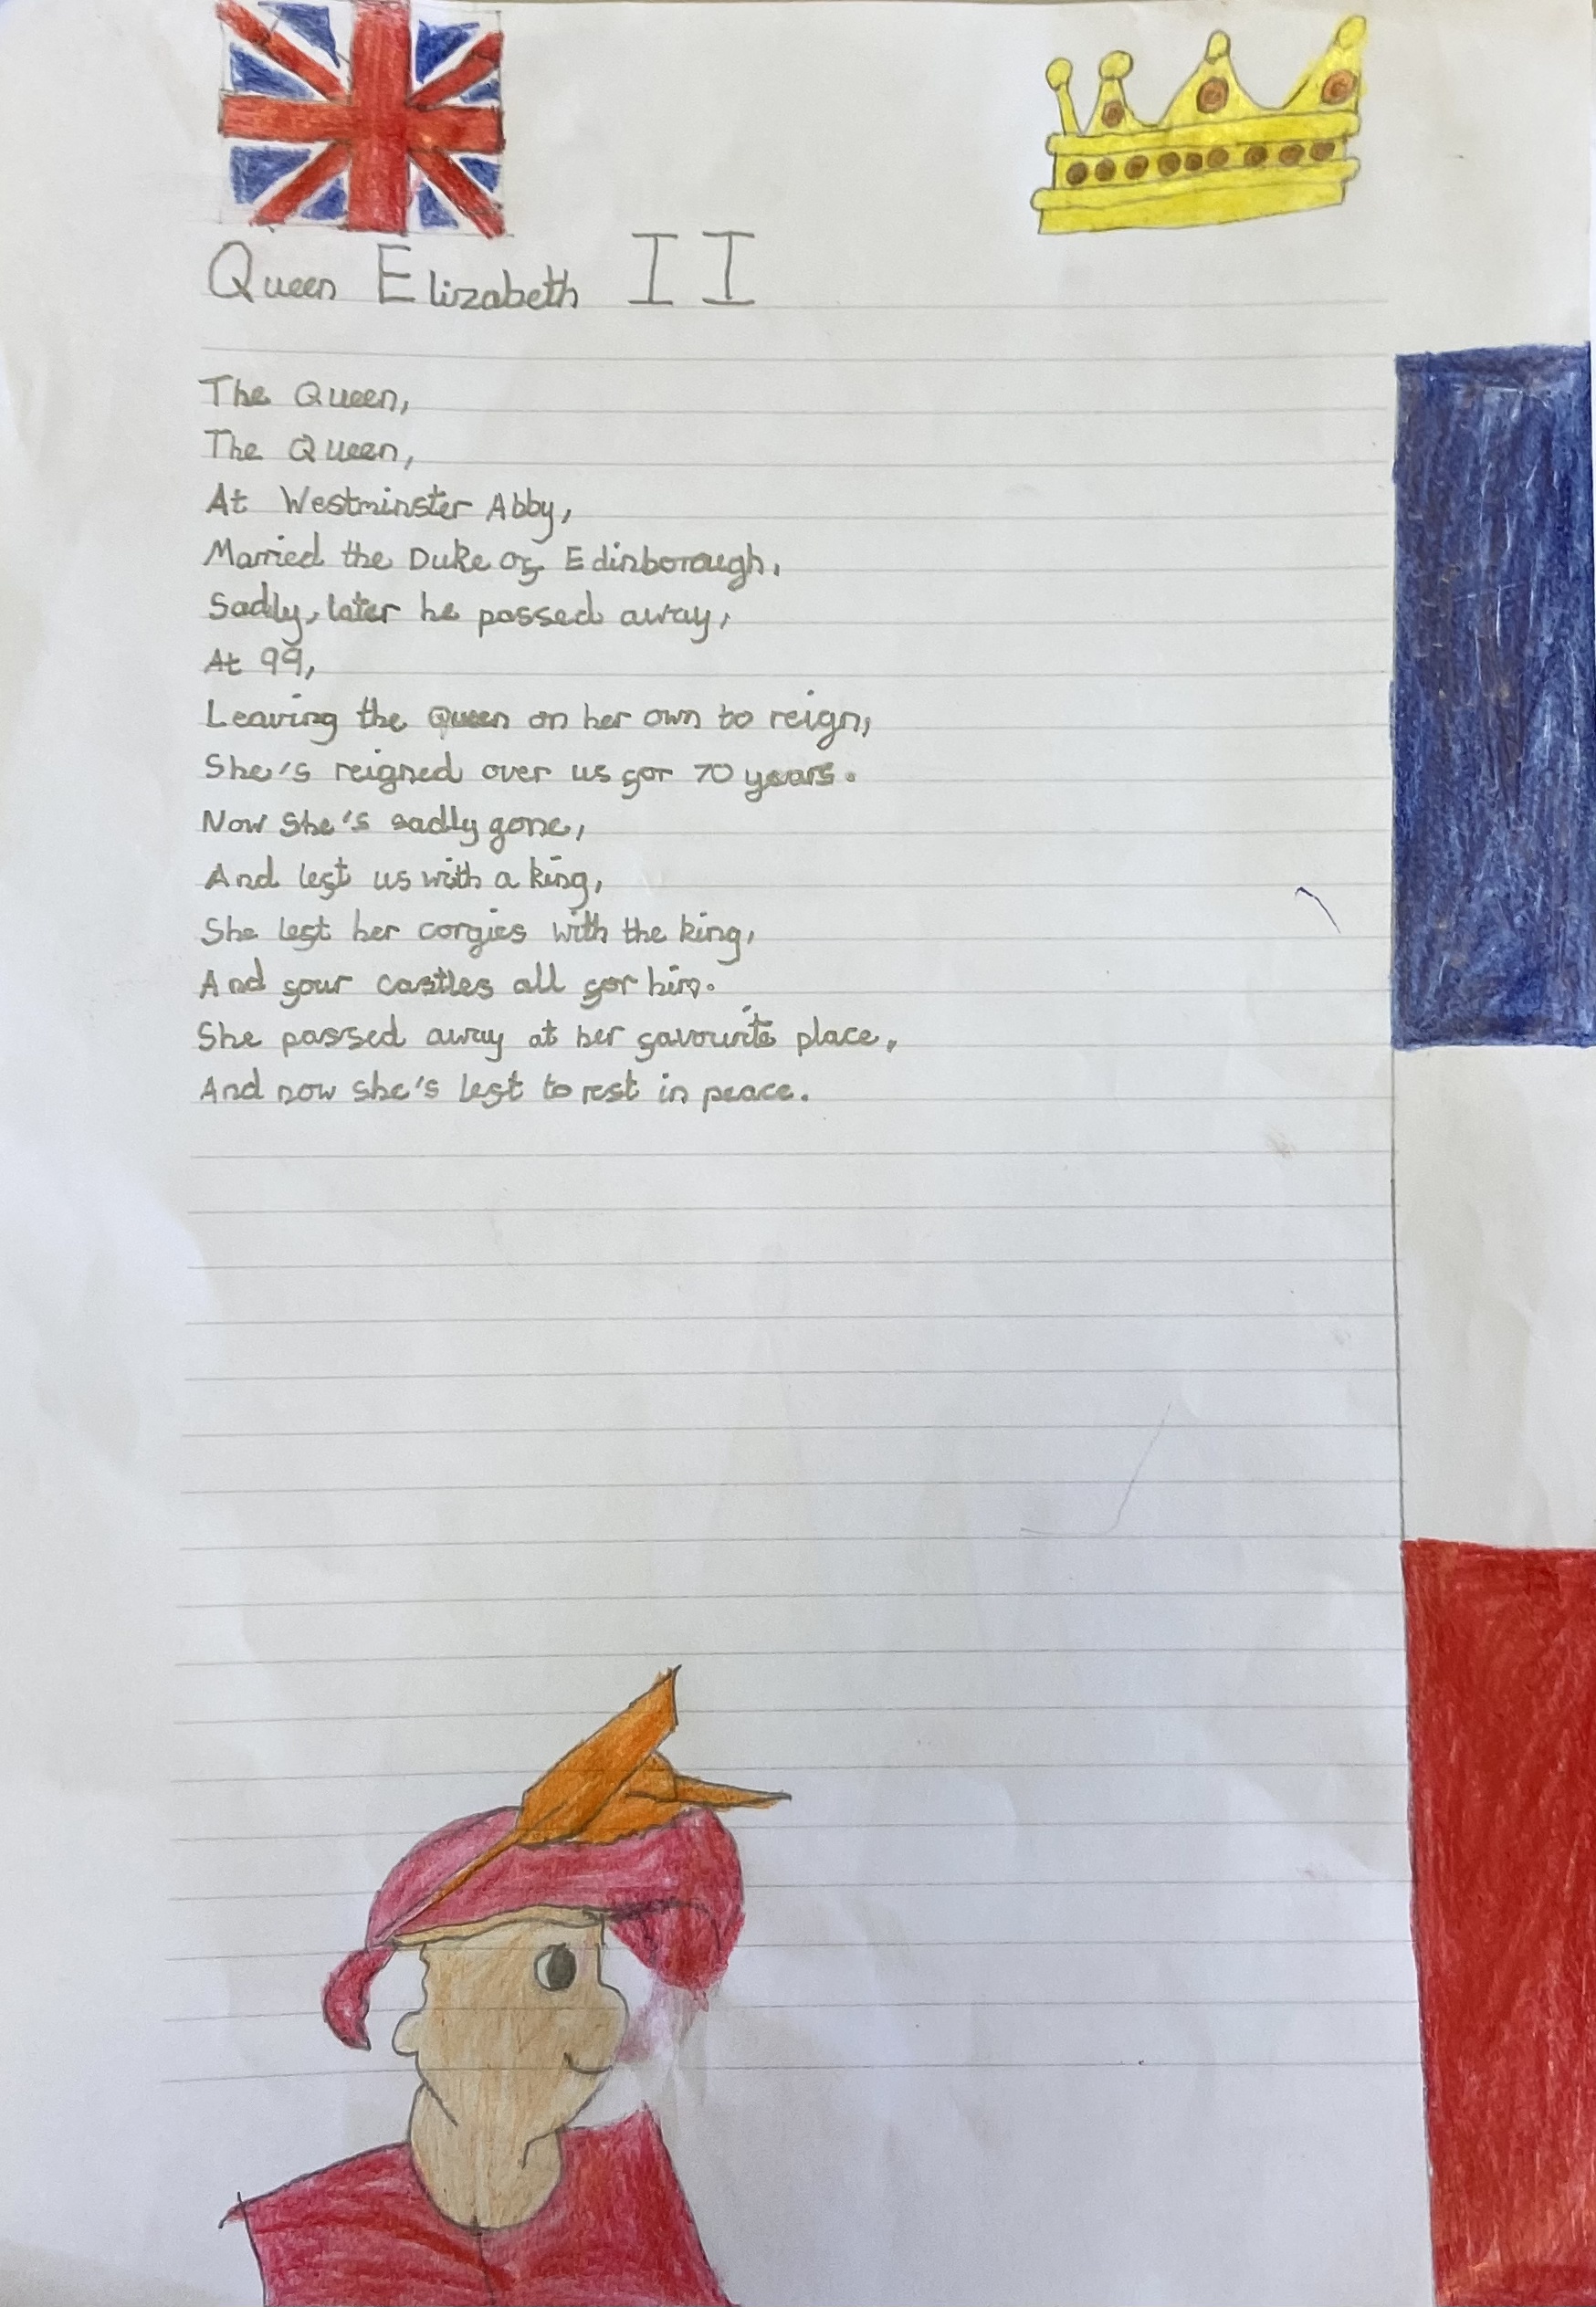 Queen Elizabeth II
The Queen,
The Queen,
At Westminster Abby,
Married the Duke of Edinborough,
Sadly, later he passed away,
At 99,
Leaving the Queen on her own to reign,
She's reigned over us for 70 years.
Now she's sadly gone,
And left us with a king,
She left her corgies with the king,
And four castles all for him.
She passed away at her favourite place,
And now she's left to rest in peace.